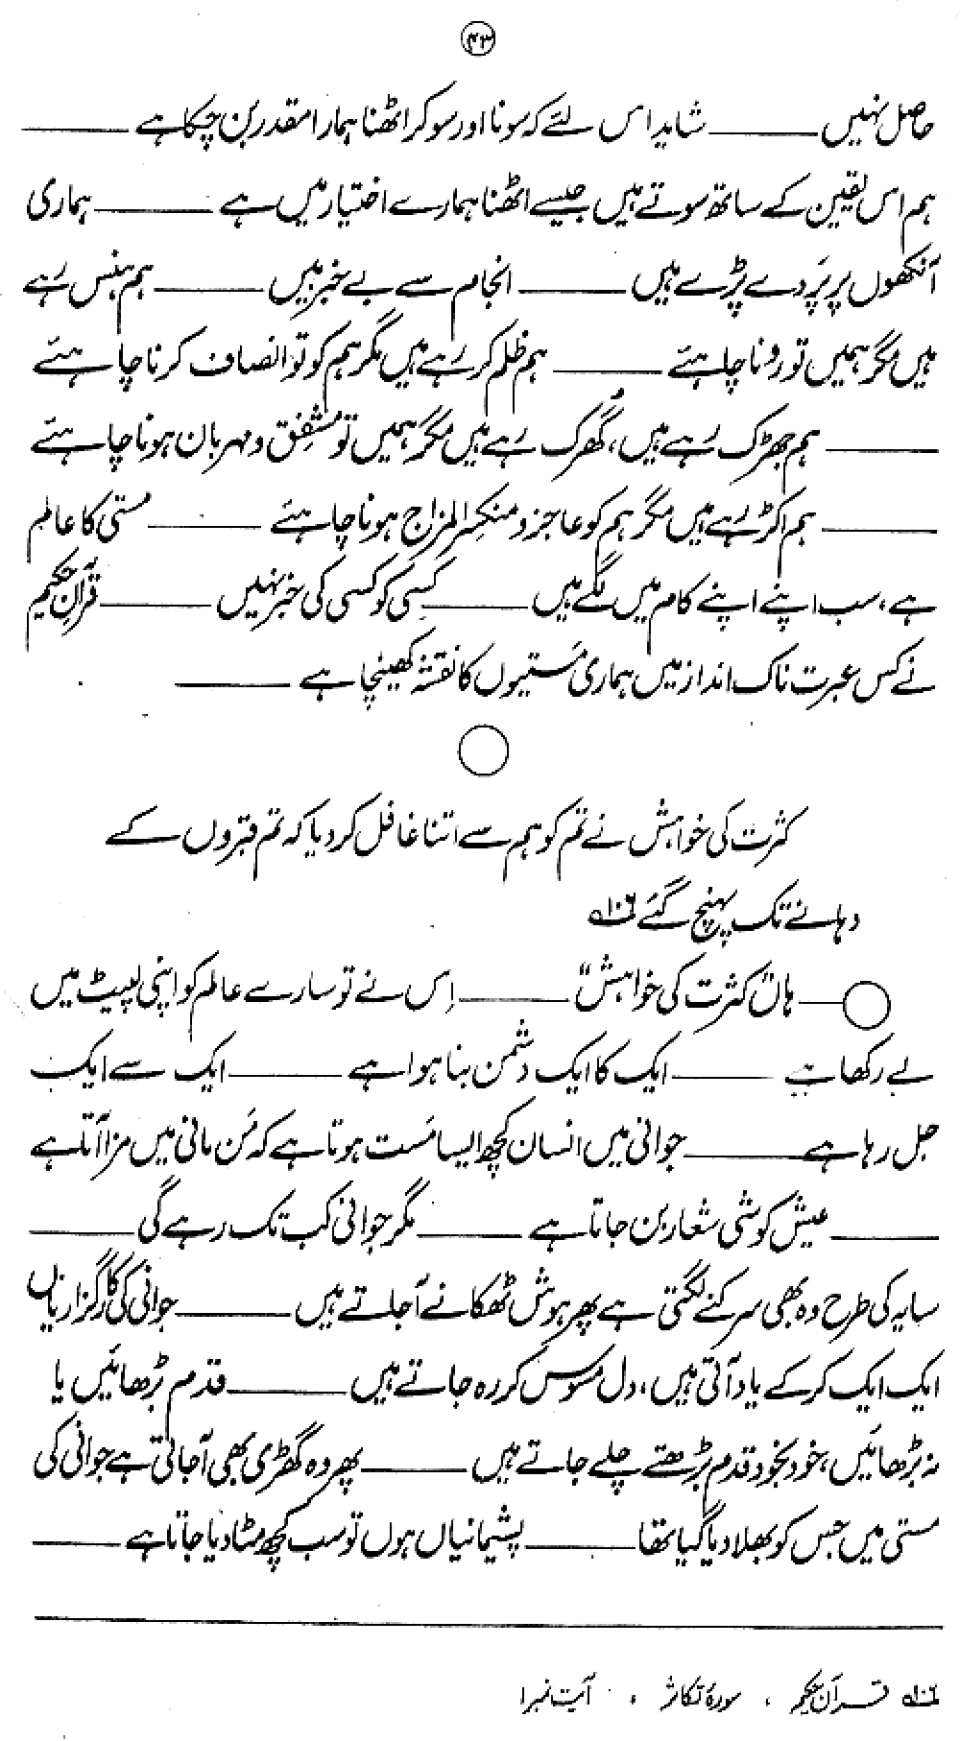 ۴۳
حاصل نہیں ــــــ شاید اس لئے کہ سونا اور سوکر اٹھنا ہمارا مقدر بن چکا ہے ــــــ
ہم اس یقین کے ساتھ سوتے ہیں جیسے اٹھنا ہمارے اختیار میں ہے ــــــ ہماری
آنکھوں پر پَردے پڑے ہیں ــــــ انجام سے بے خبر ہیں ــــــ ہم ہنس رہے
ہیں مگر ہمیں تو رونا چاہئے ــــــ ہم ظلم کر رہے ہیں مگر ہم کو تو انصاف کرنا چاہئے
ــــــ ہم جھڑک رہے ہیں، گُھرک رہے ہیں مگر ہمیں تو مشفِق و مہربان ہونا چاہئے
ــــــ ہم اکڑ رہے ہیں مگر ہم کو عاجز و منکسر المزاج ہونا چاہئے ــــــ مستی کا عالم
ہے، سب اپنے اپنے کام میں لگے ہیں ــــــ کسی کو کسی کی خبر نہیں ــــــ قرآنِ حکیم
نے کس عبرت ناک انداز میں ہماری مَستیوں کا نقشہ کھینچا ہے ــــــ
کثرت کی خواہش نے تم کو ہم سے اتنا غافل کر دیا کہ تم قبروں کے
دہانے تک پہنچ گئے ۱۰۶؎
ــــــ ہاں "کثرت کی خواہش" ــــــ اِس نے تو سارے عالم کو اپنی لپیٹ میں
لے رکھا ہے ــــــ ایک کا ایک دشمن بنا ہوا ہے ــــــ ایک سے ایک
جل رہا ہے ــــــ جوانی میں انسان کچھ ایسا مَست ہوتا ہے کہ مَن مانی میں مزا آتا ہے
ــــــ عیش کوشی شعار بن جاتا ہے ــــــ مگر جوانی کب تک رہے گی ــــــ
سایہ کی طرح وہ بھی سرکنے لگتی ہے پھر ہوش ٹھکانے آ جاتے ہیں ــــــ جوانی کی کارگزاریاں
ایک ایک کرکے یاد آتی ہیں، دل مسوس کر رہ جاتے ہیں ــــــ قدم بڑھائیں یا
نہ بڑھائیں، خود بخود قدم بڑھتے چلے جاتے ہیں ــــــ پھر وہ گھڑی بھی آجاتی ہے جوانی کی
مستی میں جس کو بھلا دیا گیا تھا ــــــ پشیمانیاں ہوں تو سب کچھ مٹا دیا جاتا ہے ــــــ
۱۰۶؎ قرآن حکیم ، سورۂ تکاثر ، آیت نمبر ۱